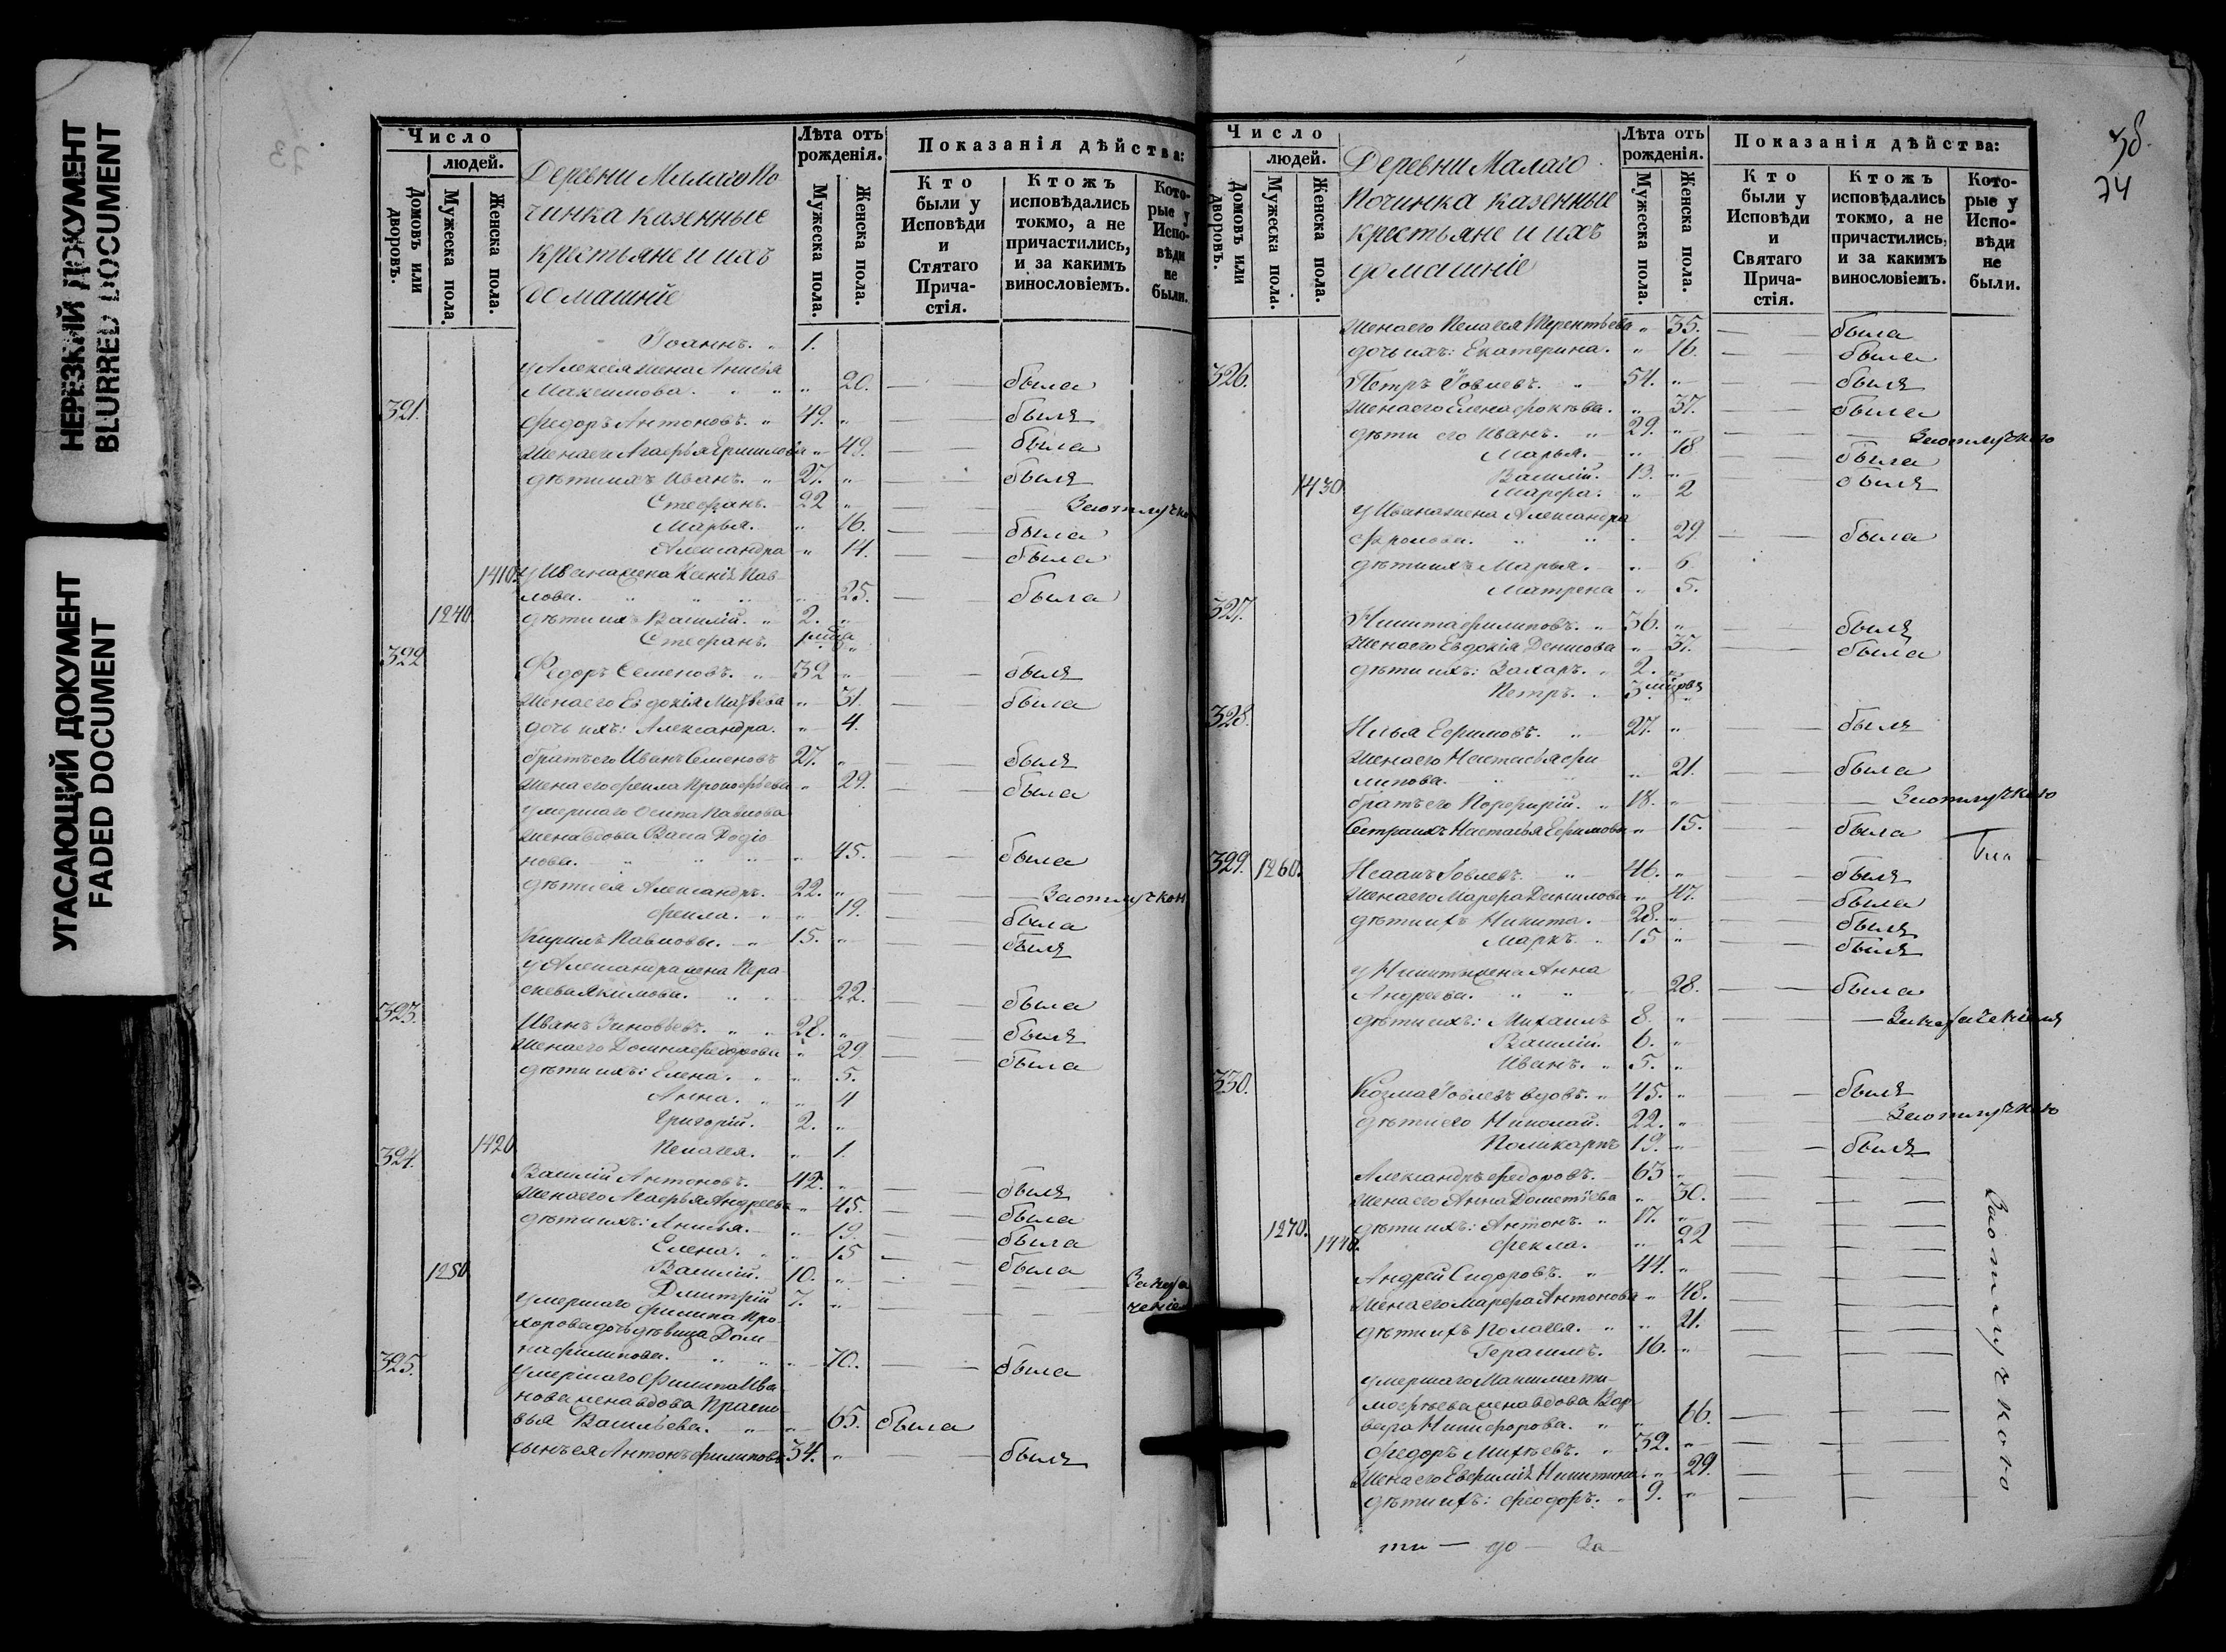 НЕРЕЗКИЙ ДОКУМЕНТ
BLURRED DOCUMENT
УГАСАЮЩИЙ ДОКУМЕНТ
FADED DOCUMENT
Число
людей.
Домовъ или дворовъ.
Мужеска пола.
Женска пола.
Деревни Малаго По
чинка казенные
крестьяне и ихъ
домашніе
Лѣта отъ рожденія.
Мужеска пола.
Женска пола.
Показанія дѣйства:
Кто были у Исповѣди и Стятаго Прича-стія.
Ктожъ исповѣдались токмо, а не причастились, и за какимъ винословіемъ.
Кото-рые у Испо-вѣди не были.
Іоаннъ. 1.
у Алексея жена Анисья
Максимова. " 20. — — была
321. Федоръ Антоновъ. 49. " — былъ
жена его Агафья Ермилова " 49. — была
дѣти ихъ Иванъ. 27. " — былъ
Стефанъ. 22 " — — За отлучкою
Марья. " 16. — — была
Александра " 14. — — была
1410. у Ивана жена Ксенія Пав
лова. " 25. — была
1240. дѣти ихъ Василій. 2. "
Стефанъ.
322 Федоръ Семеновъ. 32 " — былъ
жена его Евдокія Матвѣева " 31. — была
дочь ихъ: Александра. " 4.
братъ его Иванъ Семеновъ 27. " — — былъ
жена его Фекла Прокофьева " 29. — — была
умершаго Осипа Павлова
жена вдова Васа Родіо
нова. " 45. — — была
дѣти ея Александръ. 22. " — — За отлучкою
Фекла. " 19. — — была
Кирилъ Павловъ. 15. " — — былъ
у Александра жена Пера
скева Якимова. 22. — — была
323. Иванъ Зиновьевъ. 28. " — — былъ
жена его Домна Федорова " 29 — — была
дѣти ихъ: Елена. " 5.
Анна. " 4
Григорій. 2. "
1420 Пелагея. " 1.
324. Василій Антоновъ. 42. " — — былъ
жена его Агафья Андреева " 45. — — была
дѣти ихъ: Анисья. " 19. — — была
Елена. " 15 — — была
1250 Василій. 10. " — —
Дмитрій 7. " — —
умершаго Филипа Про
хорова дочь дѣвица Дом
на Филипова. " 70. — — была
325. умершаго Филипа Ива
нова жена вдова Праско
вья Васильева. " 65. была
сынъ ея Антонъ Филиповъ 34. " — — былъ
74
Число
людей.
Домовъ или дворовъ.
Мужеска пола.
Женска пола.
Деревни Малаго
Починка казенные
крестьяне и ихъ
домашніе
Лѣта отъ рожденія.
Мужеска пола.
Женска пола.
Показанія дѣйства:
Кто были у Исповѣди и Святаго Прича-стія.
Ктожъ исповѣдались токмо, а не причастились, и за какимъ винословіемъ.
Кото-рые у Испо-вѣди не были.
жена его Пелагея Терентьева " 35. — — была
дочь ихъ: Екатерина. " 16. — — была
326. Петръ Іовлевъ. 54. " — — былъ
жена его Елена Фокѣва. " 37. — — была
дѣти его Иванъ. 29. " — — За отлучкою
Марья. " 18 — — была
Василій. 13. " — — былъ
1430 Марфа. " 2
у Ивана жена Александра
Фролова. " 29 — — была
дѣти ихъ Марья. " 6.
Матрена " 5.
327. Никита Филиповъ. 36. " — — былъ
жена его Евдокія Денисова " 37. — — была
дѣти ихъ: Захаръ. 2. "
Петръ. 3
328. Илья Ефимовъ. 27. " — — былъ
жена его Настасья Фи
липова. " 21. — — была
братъ его Порфирій. 18. " — — За отлучкою
Сестра ихъ Настасья Ефимова " 15. — — была
329. 1260. Исаакъ Іовлевъ. 46. " — — былъ
жена его Марфа Данилова " 47. — — была
дѣти ихъ Никита. 28. " — — былъ
Маркъ. 15 " — — былъ
у Никиты жена Анна
Андреева. " 28. — — была
дѣти ихъ: Михаилъ 8. " —
Василій. 6. "
Иванъ. 5. "
330. Козма Іовлевъ вдовъ. 45. " — — былъ
дѣти его Николай. 22. " — За отлучкою
Поликарпъ 19. " — — былъ
Александръ Федоровъ. 63 " — — —
жена его Анна Дометіева " 30. — — —
1270. дѣти ихъ: Антонъ. 17. " — — —
1440. Фекла. " 22 — — —
Андрей Сидоровъ. 44. " — — —
жена его Марфа Антонова " 48. — — —
дѣти ихъ Пелагея. " 21. — — —
Герасимъ. 16. " — — —
умершаго Макима Ти
мофѣева жена вдова Вар
вара Никифорова. " 66. — — —
Федоръ Михѣевъ. 32. " — — —
жена его Евфимія Никитина. " 29. — — —
дѣти ихъ: Феодоръ. 9. " — — —
За отлучкою